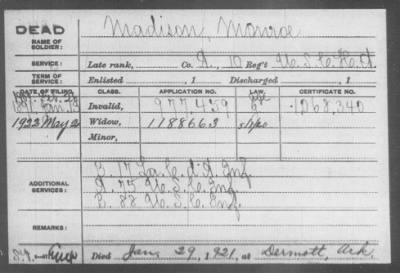 DEAD
NAME OF SOLDIER:
Madison, Monroe
SERVICE:
Late rank, Co. A, 10 Reg't U.S.C.H.A.
TERM OF SERVICE:
Enlisted , 1 Discharged , 1
DATE OF FILING CLASS. APPLICATION NO. LAW. CERTIFICATE NO.
Invalid, 977459 1268,340
1922 May 2 Widow, 1188663
Minor,
ADDITIONAL SERVICES:
E. 17 La. C. d'A. Inf.
A. 75 U.S.C. Inf.
E. 88 U.S.C. Inf.
REMARKS:
Died Jan. 29, 1921, at Dermott, Ark.